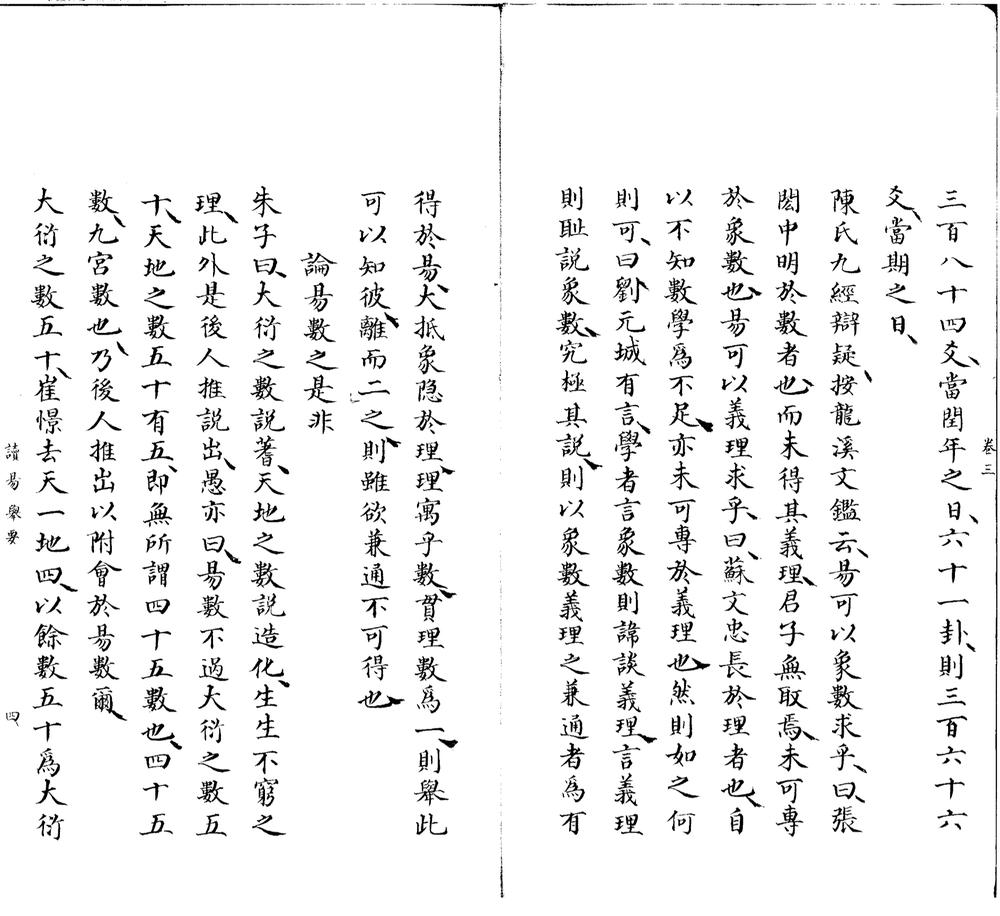 三百八十四爻、當閏年之日、六十一卦、則三百六十六
爻、當期之日、
陳氏九經辯疑、按龍溪文鑑云、昜可以象數求乎、曰、張
閎中明於數者也、而未得其義理、君子無取焉、未可專
於象數也、昜可以義理求乎、曰、蘇文忠長於理者也、自
以不知數學爲不足、亦未可專於義理也、然則如之何
則可、曰、劉元城有言、學者言象數則諱談義理、言義理
則恥説象數、究極其説、則以象數義理之兼通者為有
卷三
得於昜、大抵象隐於理、理寓乎數、貫理數爲一、則舉此
可以知彼、離而二之、則雖欲兼通不可得也、
論昜數之是非
朱子曰、大衍之數説蓍、天地之數説造化、生生不窮之
理、此外是後人推説出、愚亦曰、昜數不過大衍之數五
十、天地之數五十有五、即無所謂四十五數也、四十五
數、九宮數也、乃後人推出以附會於昜數爾、
大衍之數五十、崔憬去天一地四、以餘數五十爲大衍
讀昜舉要
四